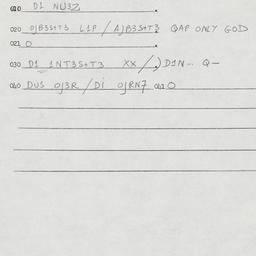 010 D1 NU3Z.
020 OJB3S+T3 L1P / AJB3S+T3 QAP ONLY GOD
021 O
030 D1 1NT3S+T3 XX / D1N... Q-
040 DUS OJ3R / Di OJRN7 041 O